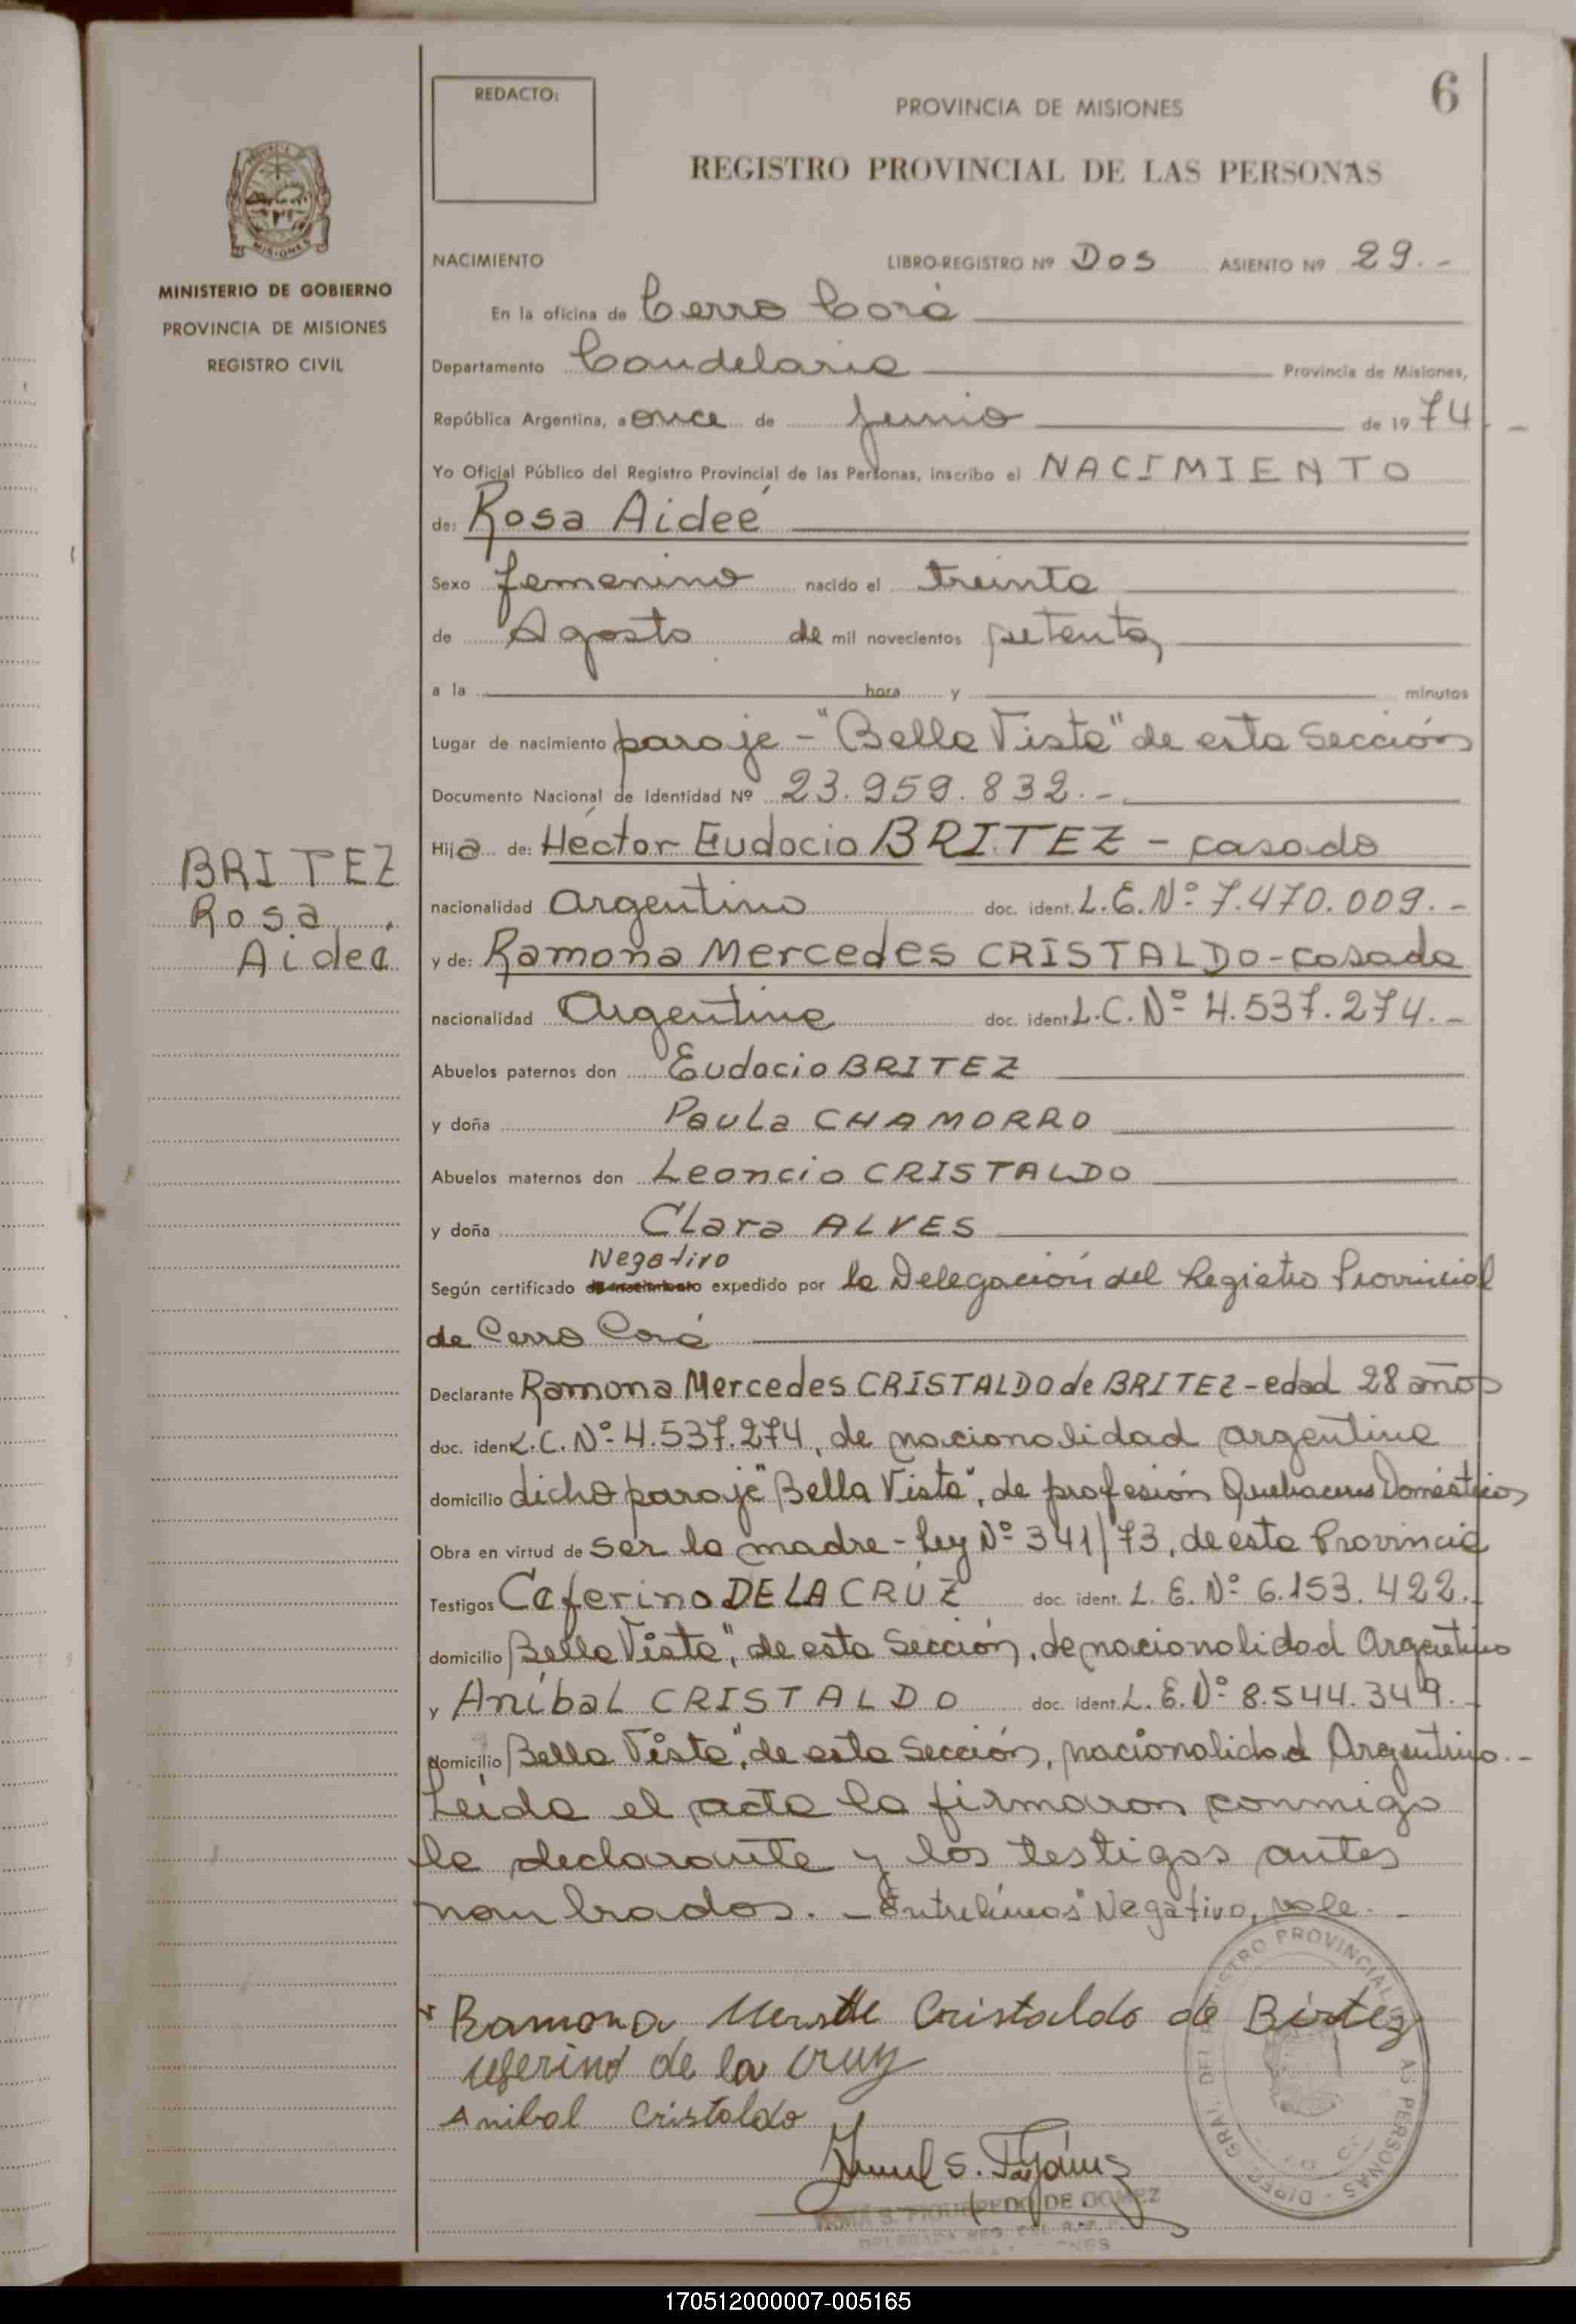 6
REDACTO:
PROVINCIA DE MISIONES
REGISTRO PROVINCIAL DE LAS PERSONAS
MISIONES
MINISTERIO DE GOBIERNO
PROVINCIA DE MISIONES
REGISTRO CIVIL
NACIMIENTO LIBRO-REGISTRO Nº Dos ASIENTO Nº 29.-
En la oficina de Cerro Corá
Departamento Candelaria Provincia de Misiones,
República Argentina, a once de Junio de 1974.-
Yo Oficial Público del Registro Provincial de las Personas, inscribo el NACIMIENTO
de: Rosa Aideé
Sexo femenino nacido el treinta
de Agosto de mil novecientos setenta
a la hora y minutos
Lugar de nacimiento paraje - "Bella Vista" de esta Sección
Documento Nacional de Identidad Nº 23.959.832.-
BRITEZ
Rosa
Aidee
Hija de: Héctor Eudocio BRITEZ - casado
nacionalidad Argentino doc. ident. L.E.Nº 7.470.009.-
y de: Ramona Mercedes CRISTALDO - casada
nacionalidad Argentina doc. ident. L.C.Nº 4.537.274.-
Abuelos paternos don Eudocio BRITEZ
y doña Paula CHAMORRO
Abuelos maternos don Leoncio CRISTALDO
y doña Clara ALVES
Negativo
Según certificado de nacimiento expedido por la Delegación del Registro Provincial
de Cerro Corá
Declarante Ramona Mercedes CRISTALDO de BRITEZ - edad 28 años
doc. iden L.C.Nº 4.537.274, de nacionalidad argentina
domicilio dicho paraje "Bella Vista", de profesión Quehaceres Domésticos
Obra en virtud de ser la madre - Ley Nº 341/73, de esta Provincia
Testigos Ceferino DE LA CRUZ doc. ident. L.E.Nº 6.153.422.-
domicilio Bella Vista", de esta Sección, de nacionalidad Argentino
y Aníbal CRISTALDO doc. ident. L.E.Nº 8.544.349.-
domicilio Bella Vista", de esta Sección, nacionalidad Argentino.-
Leída el acta la firmaron conmigo
la declarante y los testigos antes
nombrados. - Entrelíneas "Negativo, vale.-
Ramona Cristaldo de Birtez
Ceferino de la Cruz
Anibal Cristaldo
S. FIGUEREDO DE GOMEZ
170512000007-005165